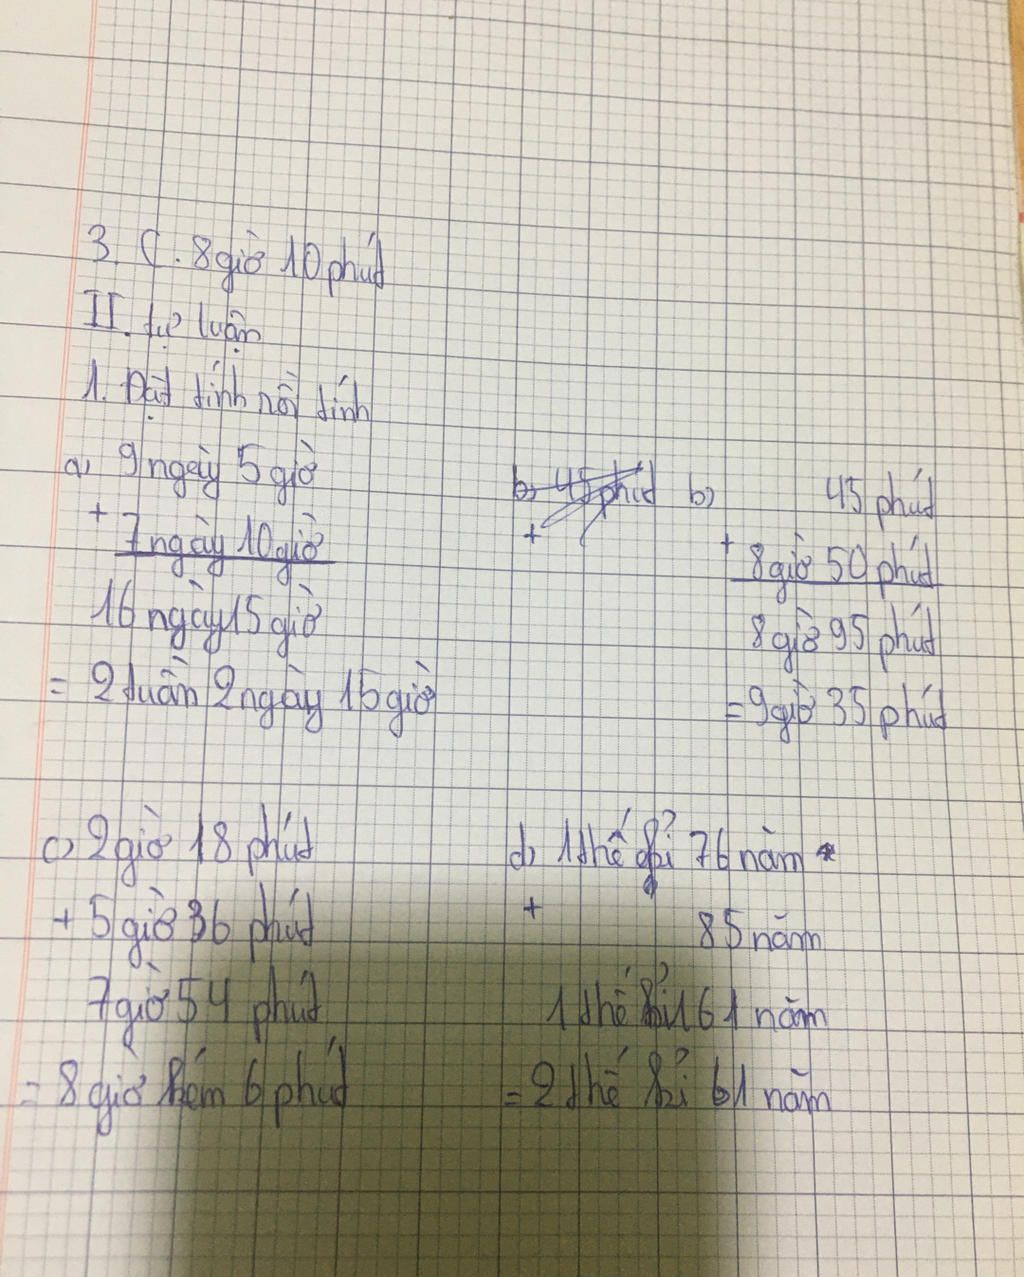 3. C. 8 giờ 10 phút
II. tự luận
1. Đặt tính rồi tính
a) 9 ngày 5 giờ
+
7 ngày 10 giờ
16 ngày 15 giờ
= 2 tuần 2 ngày 15 giờ
b) 45 phút
+
b) 45 phút
+
8 giờ 50 phút
8 giờ 95 phút
= 9 giờ 35 phút
c) 2 giờ 18 phút
+ 5 giờ 36 phút
7 giờ 54 phút
= 8 giờ kém 6 phút
d) 1 thế kỉ 76 năm
+
85 năm
1 thế kỉ 161 năm
= 2 thế kỉ 61 năm